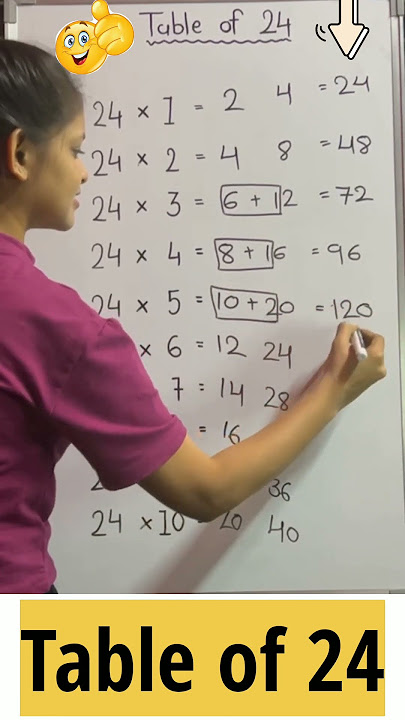 Table of 24
24 × 1 = 2 4 = 24
24 × 2 = 4 8 = 48
24 × 3 = 6 + 12 = 72
24 × 4 = 8 + 16 = 96
24 × 5 = 10 + 20 = 120
× 6 = 12 24
7 = 14 28
= 16
36
24 × 10 = 20 40
Table of 24